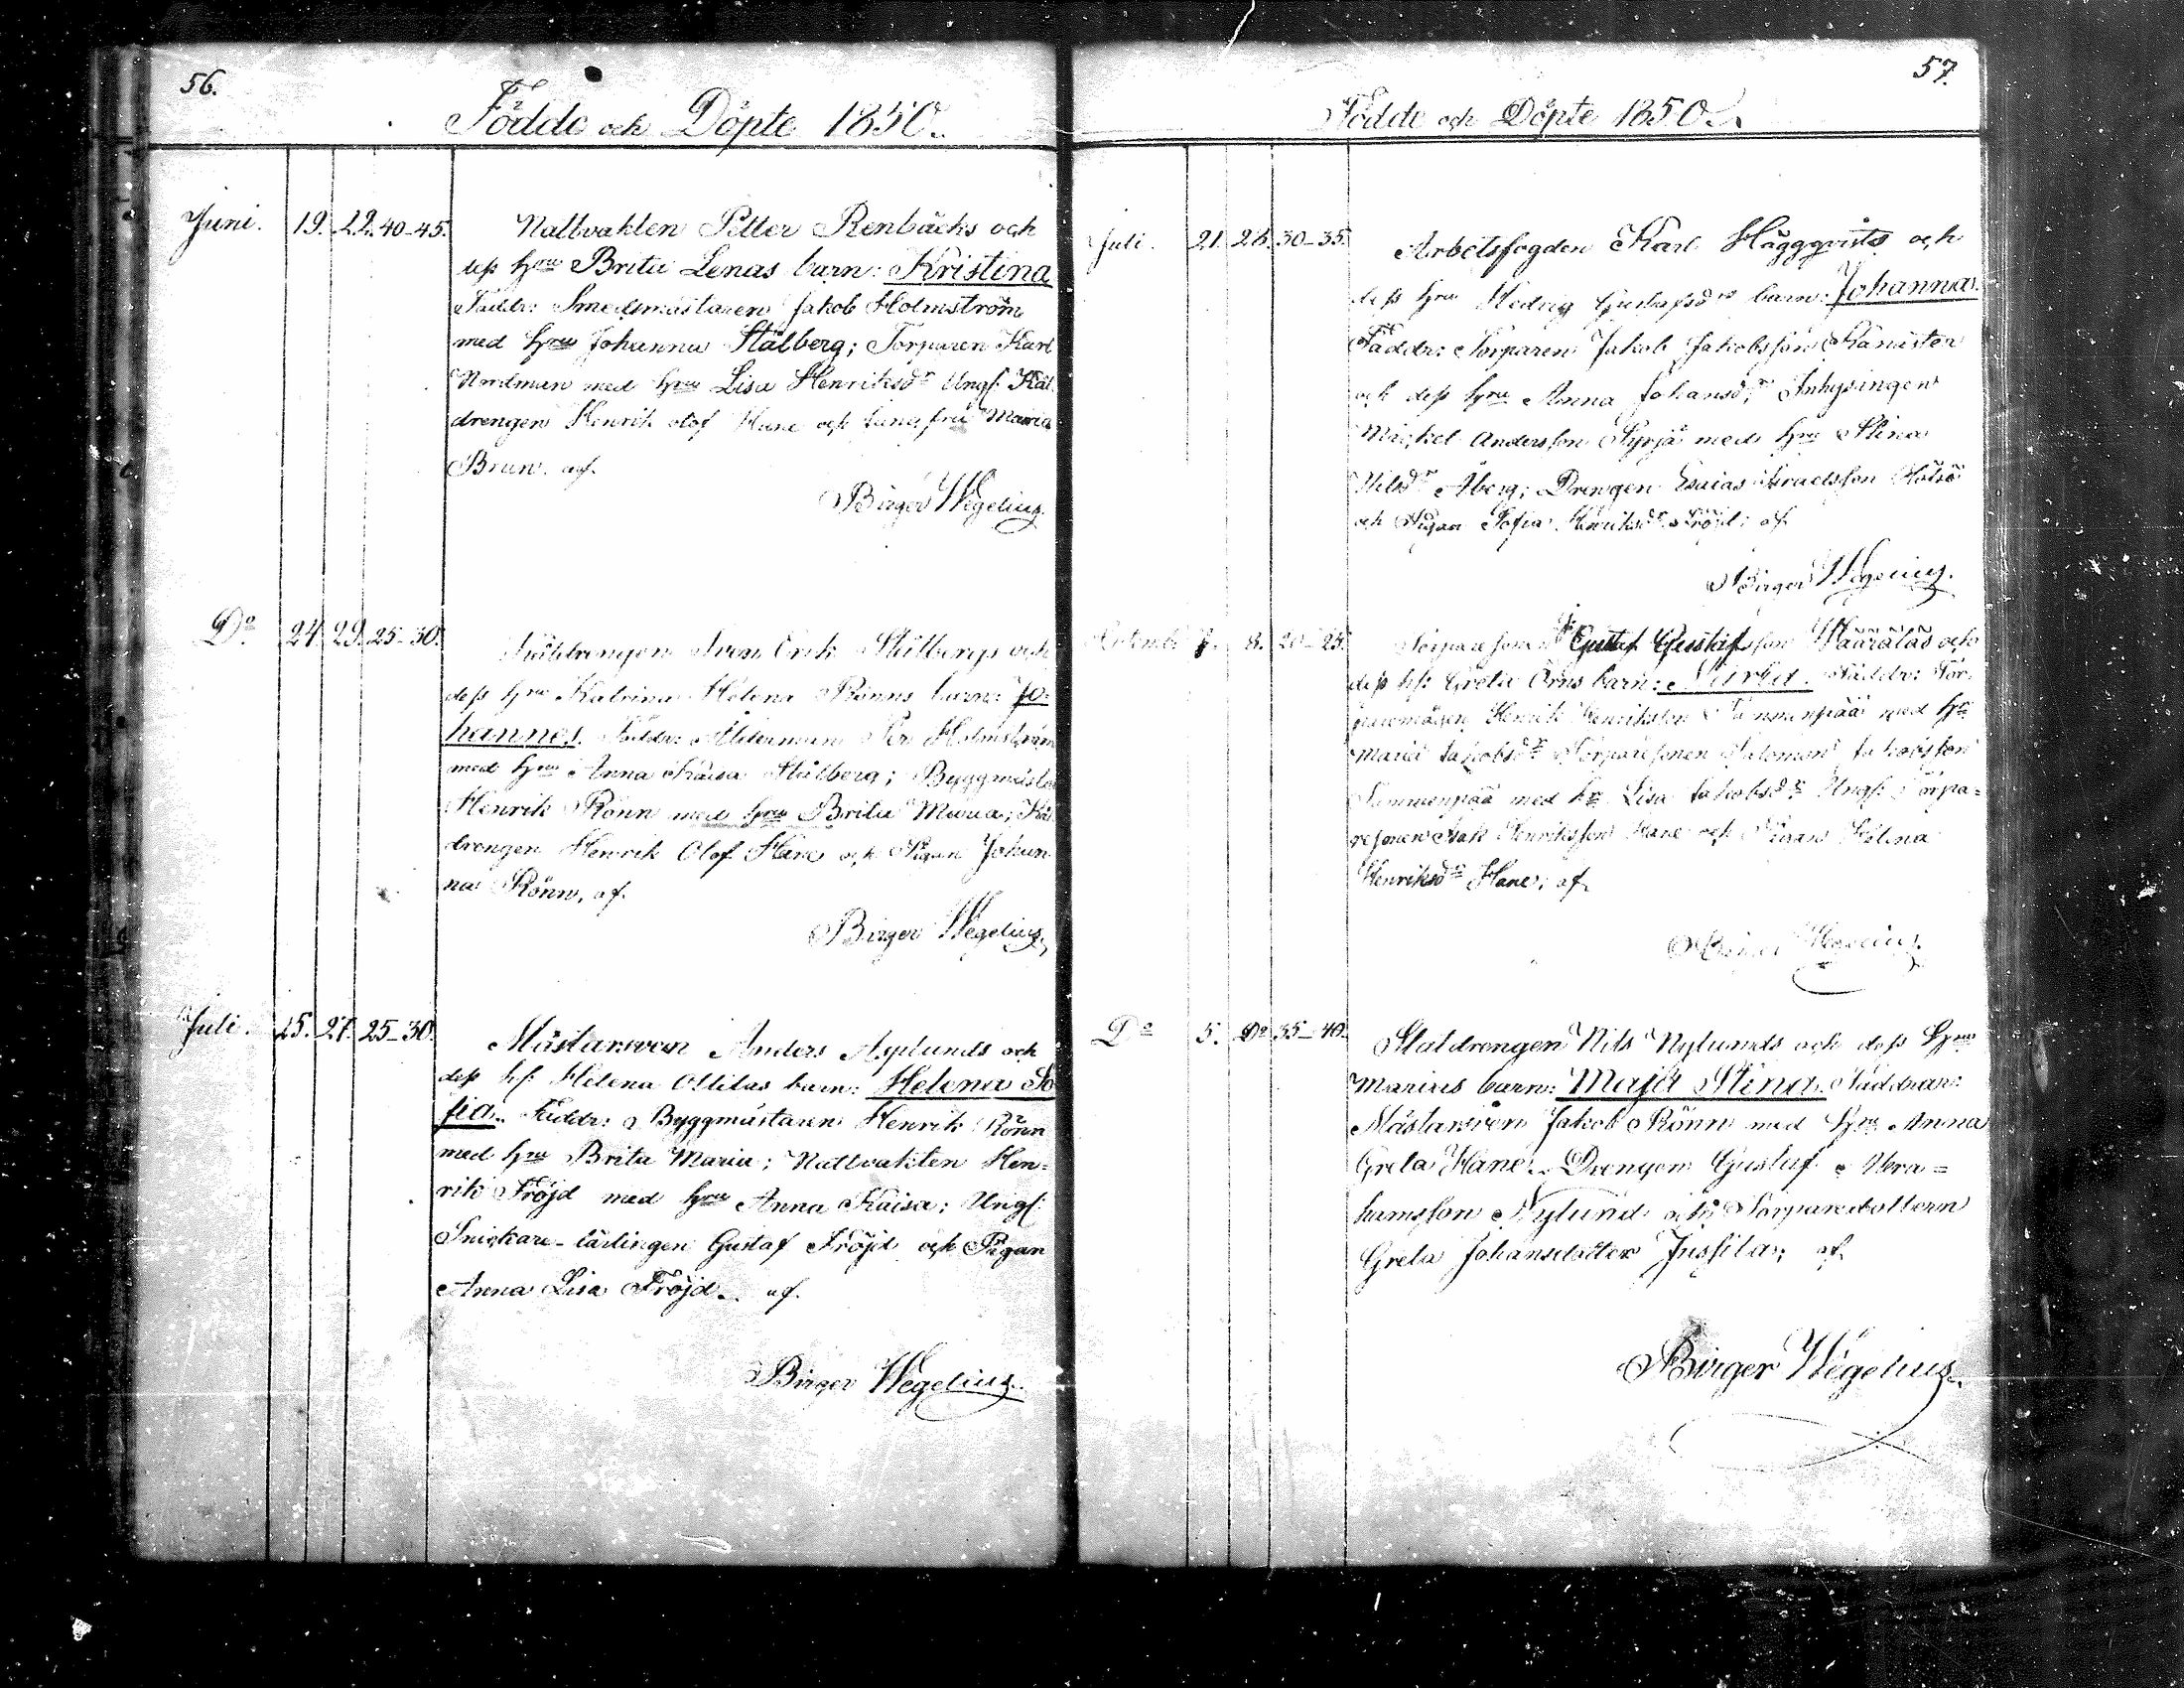 56.
Födde och Döpte 1850.
Juni. 19. 22. 40-45. Nattvakten Petter Renbäcks och
dess hru Brita Lenas barn: Kristina
Faddr: Smedsmästaren Jakob Holmström
med hru Johanna Stålberg; Torparen Karl
Nordman med hru Lisa Henriksdr Ungf: Käl
drengen Henrik Olof Hane och Jungfru Maria
Brun. af.
Birger Wegelius.
Do 24. 29. 25-30. Sven Erik Stålbergs och
dess hru Katrina Helena Rönns barn: Jo-
hannes. Faddr: Ålderman Per Holmström
med hru Anna Kaisa Stålberg; Byggmästa
Henrik Rönn med hru Brita Maria; Käl
drengen Henrik Olof Hane och Pigan Johan
na Rönn, af.
Birger Wegelius.
Juli. 25. 27. 25-30. Mästarsven Anders Asplunds och
dess hf: Helena Ottilas barn: Helena So
fia. Faddr: Byggmästaren Henrik Rönn
med hru Brita Maria; Nattvakten Hen-
rik Fröjd med hru Anna Kaisa; Ungf:
Snickare-lärlingen Gustaf Fröjd och Pigan
Anna Lisa Fröjd. af.
Birger Wegelius.
57.
Födde och Döpte 1850.
Juli. 21. 28. 30-35. Arbetsfogden Karl Häggqvists och
dess hru Hedvig Gustafsdrs barn: Johanna.
Faddr: Torparen Jakob Jakobsson
och dess hru Anna Johansdr; Inhysingen
Mickel Andersson Syrjä med hru Stina
Nilsdr Åberg; Drengen Esaias Israelsson
och Pigan Sofia Henriksdr Fröjd; af
Birger Wegelius.
8. 20-25. Torparesonen Gustaf Gustafsson Määräläs och
dess hf: Greta Örns barn: Faddr: Tor-
Henrik Henriksson Tammenpää med hru
Maria Jakobsdr Torparesonen Salomon Jakobsson
Tammenpää med hr Lisa Jakobsdr Ungf: Torpa-
resonen Isak Henriksson Hane och Pigan Helena
Henriksdr Hane; af
Birger Wegelius.
Do 5. Do 35-40. Staldrengen Nils Nylunds och dess Hru
Marias barn: Maja Stina. Faddrar:
Mästarsven Jakob Rönn med hru Anna
Greta Hane. Drengen Gustaf Abra-
hamsson Nylund och Torparedottern
Greta Johansdotter Jussila; af
Birger Wegelius.